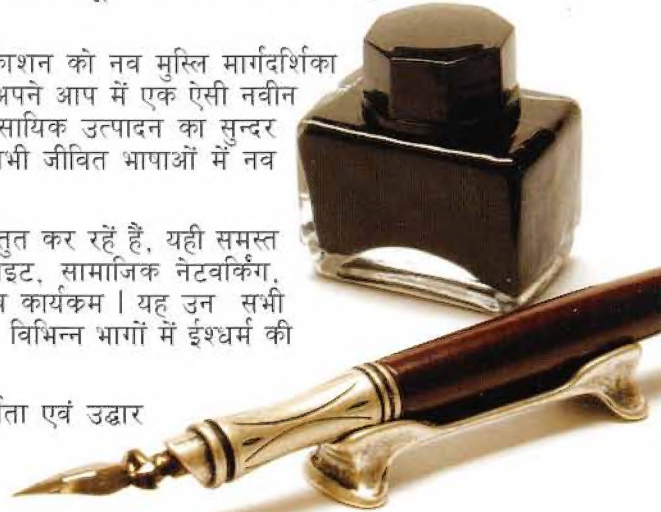 काशन को नव मुस्लि मार्गदर्शिका
अपने आप में एक ऐसी नवीन
सायिक उत्पादन का सुन्दर
भी जीवित भाषाओं में नव
तुत कर रहें हैं, यही समस्त
इट, सामाजिक नेटवर्किंग,
कार्यकम | यह उन सभी
विभिन्न भागों में ईश्धर्म की
एवं उद्धार